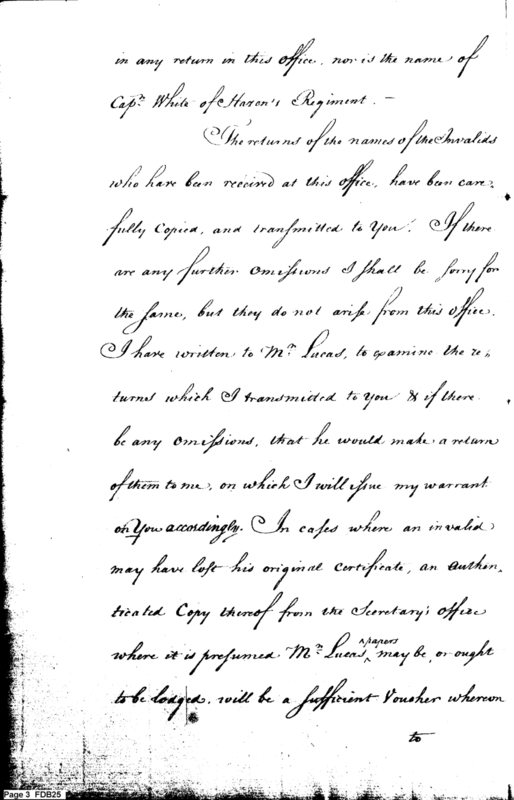 in any return in this office, nor is the name of
Capn. White of Hazen's Regiment. —
The returns of the names of the Invalids
who have been received at this office, have been care,
fully Copied, and transmitted to You. If there
are any further omissions I shall be sorry for
the same, but they do not arise from this office.
I have written to Mr. Lucas, to examine the re,
turns which I transmitted to you & if there
be any omissions, that he would make a return
of them to me, on which I will issue my warrant
on You accordingly. In cases where an invalid
may have lost his original certificate, an authen,
ticated Copy thereof from the Secretary's office
where it is presumed Mr. Lucas^ papers may be, or ought
to be lodged, will be a sufficient Voucher whereon
to
Page 3 FDB25